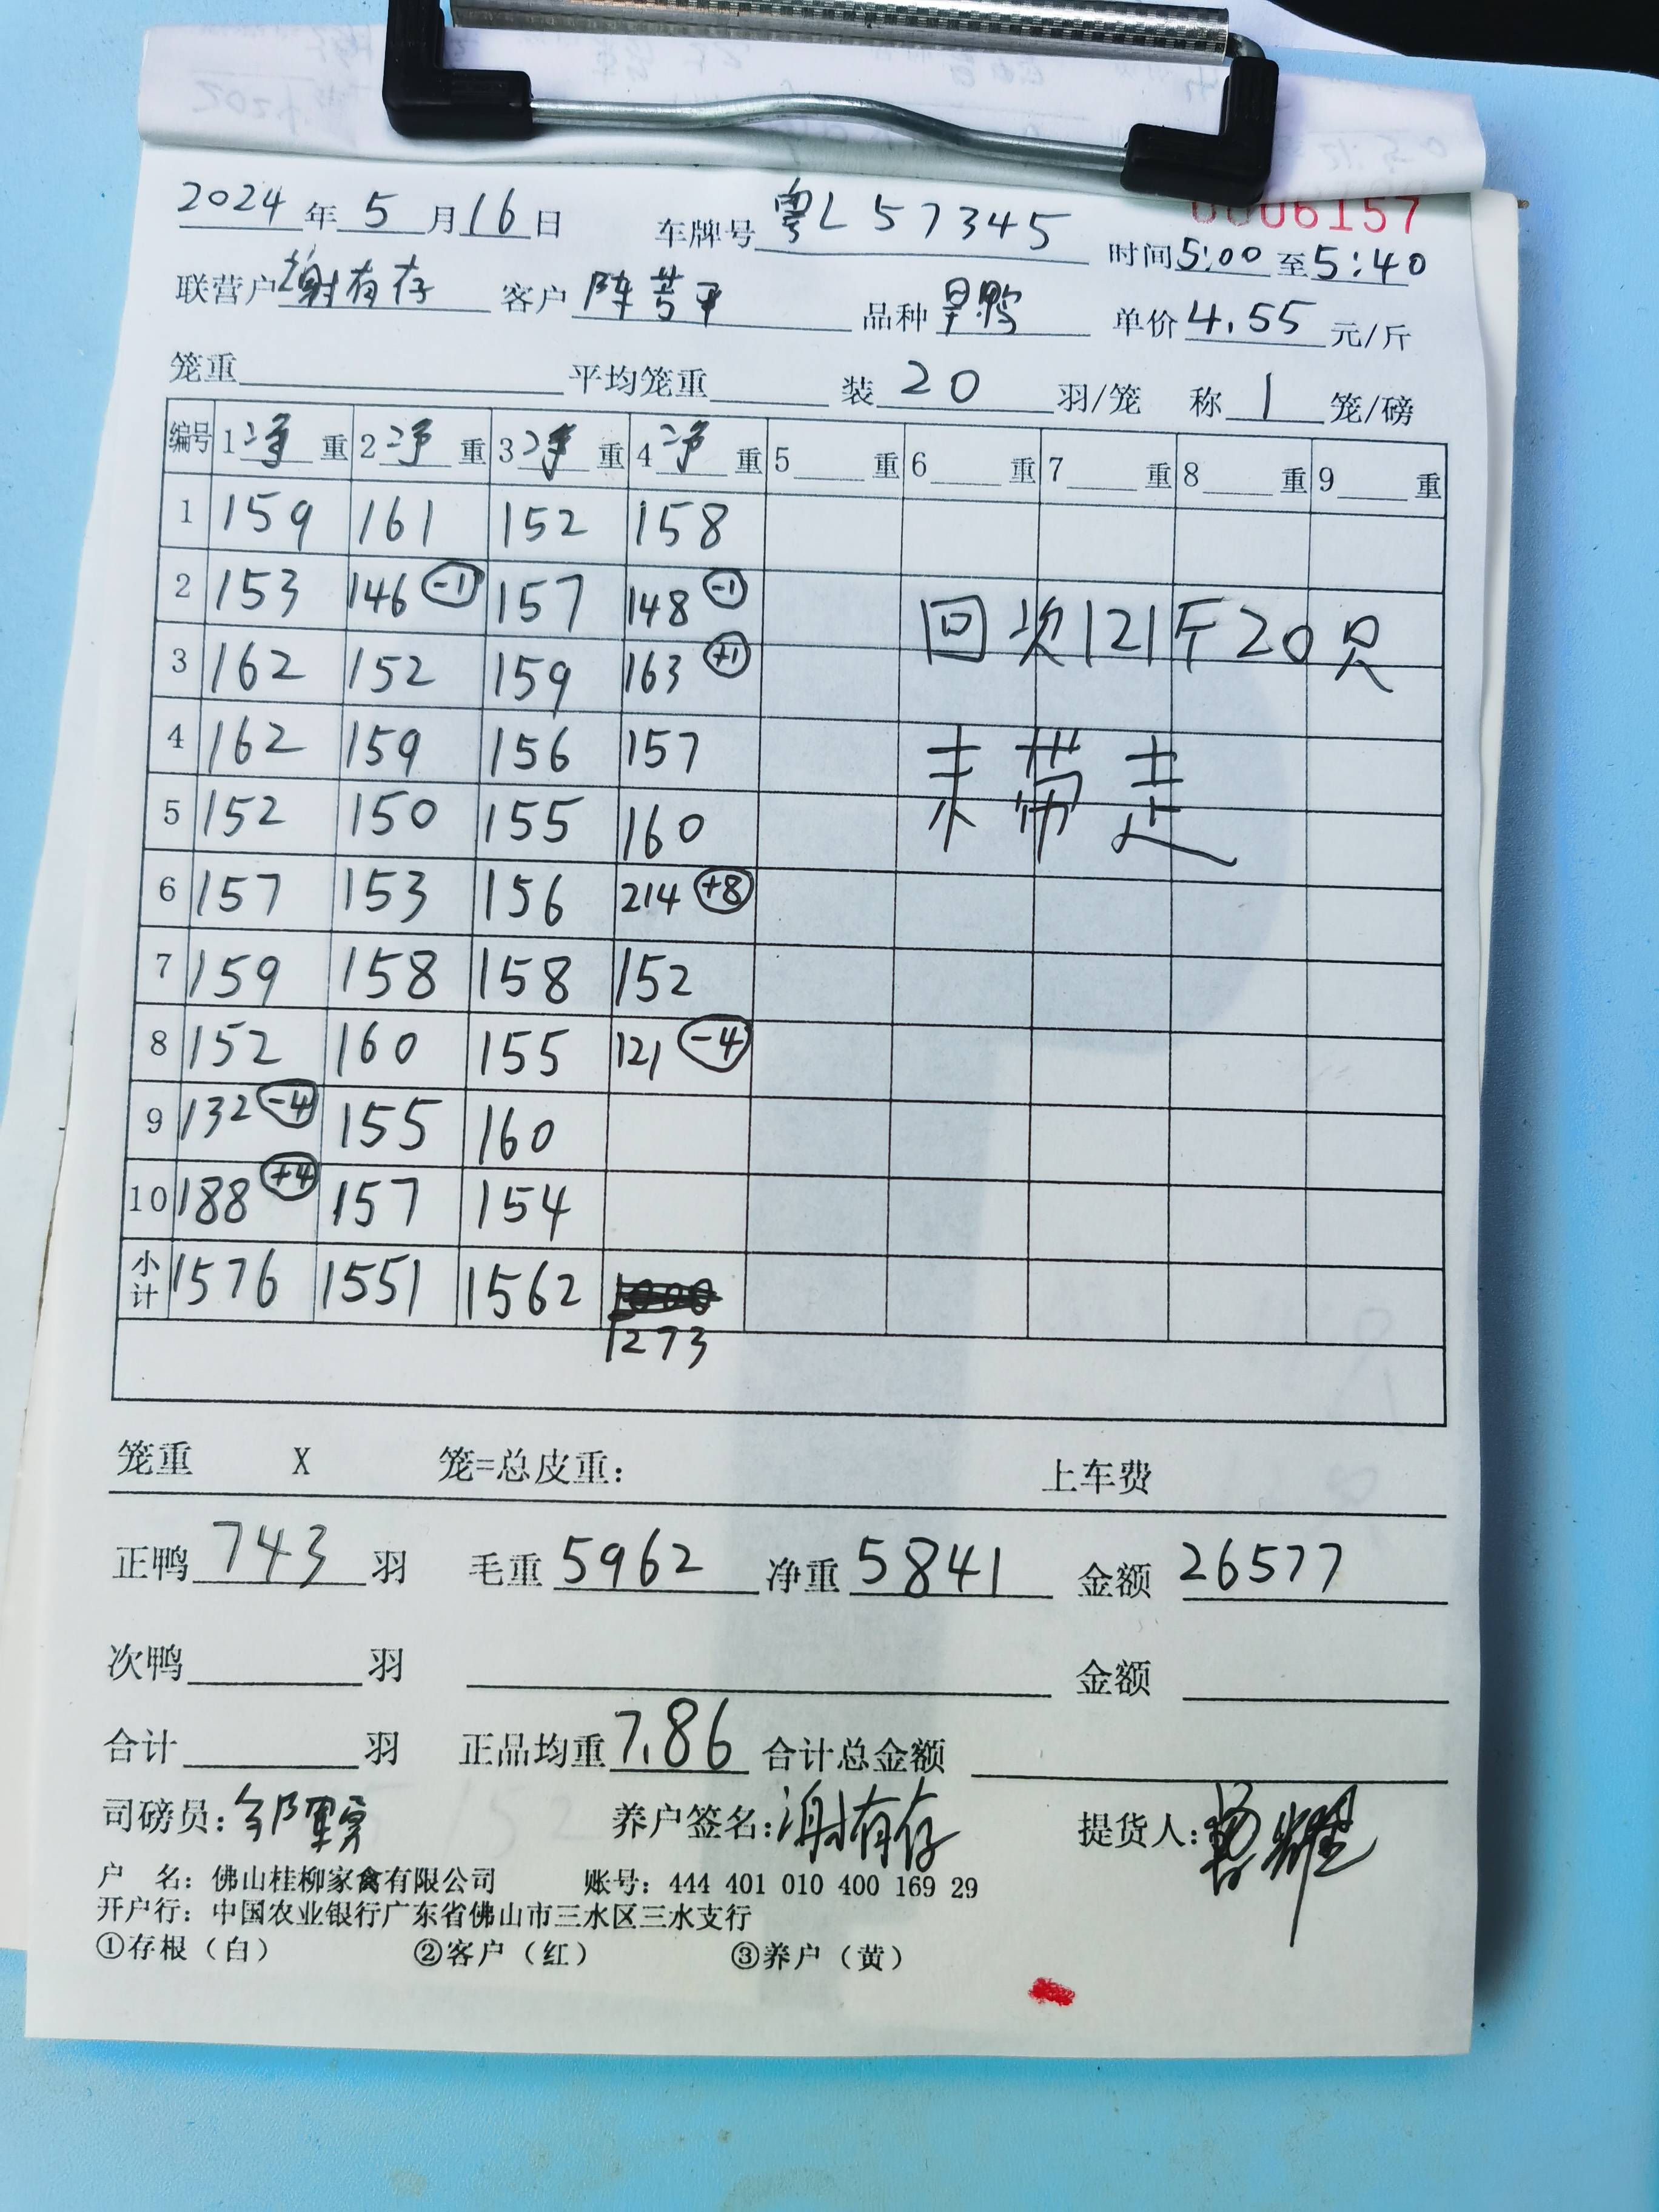 0006157
2024年5月16日 车牌号 粤L57345 时间5:00至5:40
联营户 谢有存 客户 陈芳平 品种 旱鸭 单价4.55元/斤
笼重 平均笼重 装20羽/笼 称1笼/磅
编号 1净重 2净重 3净重 4净重 5重 6重 7重 8重 9重
1 159 161 152 158
2 153 146 -1 157 148 -1
3 162 152 159 163 +1
4 162 159 156 157
5 152 150 155 160
6 157 153 156 214 +8
7 159 158 158 152
8 152 160 155 121 -4
9 132 -4 155 160
10 188 +4 157 154
小计 1576 1551 1562
1273
回次121斤20只
未带走
笼重 X 笼=总皮重: 上车费
正鸭743羽 毛重5962 净重5841 金额26577
次鸭 羽 金额
合计 羽 正品均重7.86 合计总金额
司磅员: 养户签名:谢有存 提货人:
户 名: 佛山桂柳家禽有限公司 账号: 444 401 010 400 169 29
开户行: 中国农业银行广东省佛山市三水区三水支行
①存根（白） ②客户（红） ③养户（黄）